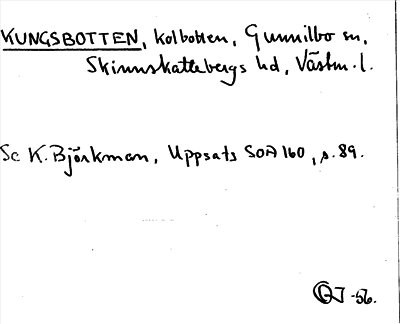 KUNGSBOTTEN, kolbotten, Gunnilbo sn,
Skinnskattebergs hd, Västm. l.
Se K. Björkman, Uppsats SOA 160, s. 89.
-56.